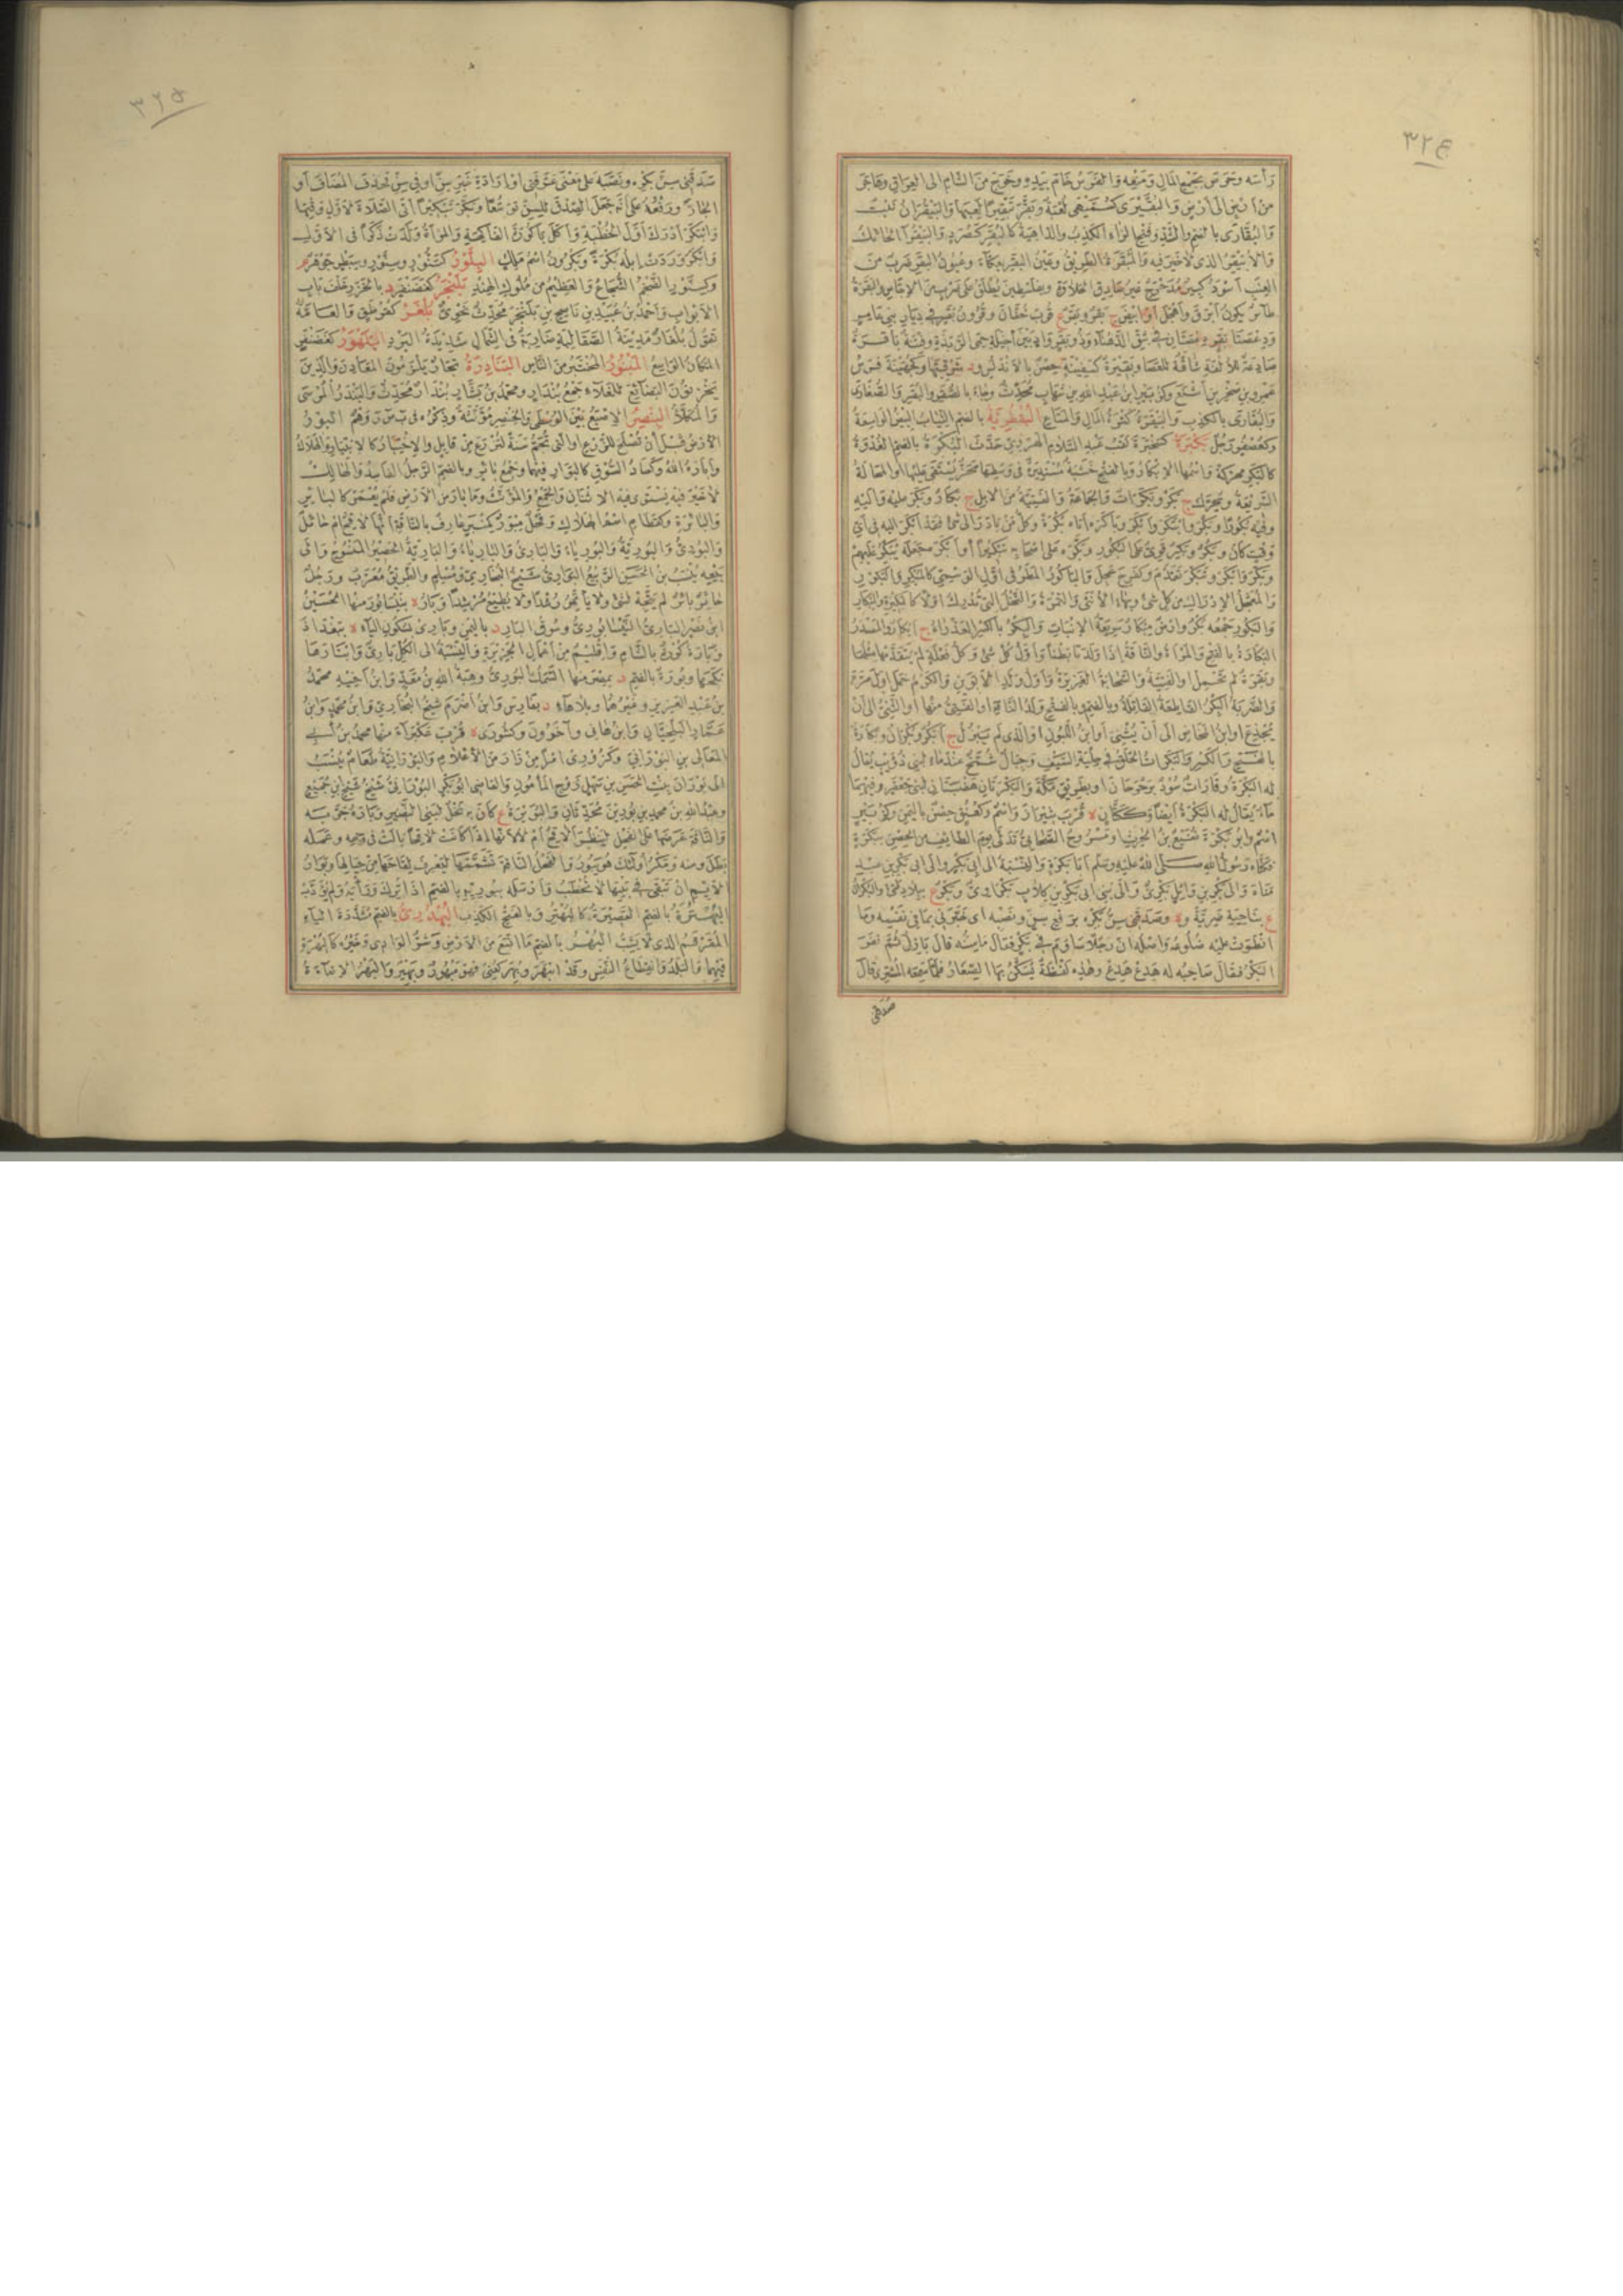 ٣٢٤
رأسه وحرص بجمع المال ومنعه والفرس خام بيده وخرج من الشام الى العراق وهاجر
من ارض الى ارض والبقيرى كسميهى لعبة وبقر تبقيرا لعبها والبيقران نبت
والبقارى بالضم والشد وفتح الراء الكذب والداهية كالبقر كصرد والبيقر الحائك
والابيقر الذى لا خير فيه والبقرة الطريق وعين البقر بعكاء وعيون البقر ضرب من
العنب اسود كبير مدحرج غير صادق الحلاوة وبفلسطين يطلق على ضرب من الاجاص والبقرة
طائر يكون ابرق واطحل او ابيض ج بقر وبقر ع قرب خفان وقرون بقر فى ديار بنى عامر
عمرو بن صخر بن اشنع وكزبير ابن عبد الله بن شهاب محدث وجاء بالشقر والبقر والصقارى
والبقارى بالكذب والبيقرة كثرة المال والمتاع البقطرية بالضم الثياب البيض الواسعة
وكعصفور رجل بكبرة لقب عبد السلام الهروى حدث البكرة بالضم الغدوة
كالبكر محركة واسمها الابكار وبالفتح خشبة مستديرة فى وسطها محز يستقى عليها او المحالة
السريعة ويحرك ج بكر وبكرات والجماعة والفتية من الابل ج بكار وبكر عليه واليه
وفيه بكورا وبكر وابتكر وابكر وباكره اتاه بكرة وكل من بادر الى شئ فقد ابكر اليه فى اى
وقت كان وبكر وبكر قوى على البكور وبكره على اصحابه تبكيرا وابكره جعله يبكر عليهم
وبكر وابكر وتبكر تقدم وكفرح عجل والباكور المطر فى اول الوسمى كالمبكر والبكور
والمعجل الادراك من كل شئ وبهاء الانثى والثمرة والنخل التى تدرك اولا كالبكيرة والمبكار
والبكور جمعه بكر وارض مبكار سريعة الانبات والبكر بالكسر العذراء ج ابكار والمصدر
البكارة بالفتح والمرأة والناقة اذا ولدتا بطنا واحدا واول كل شئ وكل فعلة لم يتقدمها مثلها
وبقرة لم تحمل او الفتية والسحابة الغزيرة واول ولد الابوين والكرم حمل اول مرة
والضربة البكر القاطعة القاتلة وبالضم وبالفتح ولد الناقة او الفتى منها او الثنى الى ان
يجذع او ابن المخاض الى ان يثنى او ابن اللبون او الذى لم يبزل ج ابكر وبكران وبكارة
بالفتح والكسر والبكرات الحلق فى حلية السيف وجبال شمخ عند ماء لبنى ذؤيب يقال
له البكرة وقارات سود برحرحان او بطريق مكة والبكرتان هضبتان لبنى جعفر وفيهما
ماء يقال له البكرة ايضا وككتان ة قرب شيراز واسم وكعنق حصن باليمن وكزبير
اسم وابو بكرة نفيع بن الحارث او مسروح الصحابى تدلى يوم الطائف من الحصن ببكرة
فكناه رسول الله صلى الله عليه وسلم ابا بكرة والنسبة الى ابى بكر والى ابى بكر بن عبد
مناة والى بكر بن وائل بكرى والى بنى ابى بكر بن كلاب بكراوى وبكر ع ببلاد طيئ والبكران
ع بناحية ضرية و ة وصدقنى سن بكره برفع سن ونصبه اى خبرنى بما فى نفسه وما
انطوت عليه ضلوعه واصله ان رجلا ساوم فى بكر فقال ما سنه فقال بازل ثم نفر
البكر فقال صاحبه له هدع هدع وهذه لفظة يسكن بها الصغار فلما سمعه المشترى قال
صدقنى
٣٢٥
صدقنى سن بكره ونصبه على معنى عرفنى او ارادة خبر سن او فى سن فحذف المضاف او
الجار ورفعه على انه جعل الصدق للسن توسعا وبكر تبكيرا اتى الصلاة لاول وقتها
وابتكر ادرك اول الخطبة واكل باكورة الفاكهة والمرأة ولدت ذكرا فى الاول
وابكر وردت ابله بكرة وبكرون اسم البلور كتنور وسنور وسبطر جوهر م
وكسنور الضخم الشجاع والعظيم من ملوك الهند بلنجر كغضنفر د بالخزر خلف باب
الابواب واحمد بن عبيد بن ناصح بن بلنجر محدث نحوى بلغر كقرطق والعامة
تقول بلغار مدينة الصقالبة ضاربة فى الشمال شديدة البرد البلهور كغضنفر
المكان الواسع المبنور المختبر من الناس البنادرة تجار يلزمون المعادن والذين
يخزنون البضائع للغلاء جمع بندار ومحمد بن بشار بندار محدث والبندر المرسى
والمكلأ البنصر الاصبع بين الوسطى والخنصر مؤنثة وذكره فى ب ص ر وهم البور
الارض قبل ان تصلح للزرع او التى تجم سنة لتزرع من قابل والاختبار كالابتيار والهلاك
واباره الله وكساد السوق كالبوار فيهما وجمع بائر وبالضم الرجل الفاسد والهالك
لا خير فيه يستوى فيه الاثنان والجمع والمؤنث وما بار من الارض فلم يعمر كالبائر
والبائرة وكقطام اسم الهلاك وفحل مبور كمنبر عارف بالناقة انها لاقح ام حائل
والبورى والبورية والبورياء والبارى والبارياء والبارية الحصير المنسوج والى
بيعه ينسب الحسن بن الربيع البوارى شيخ البخارى ومسلم والطريق معرب ورجل
حائر بائر لم يتجه لشئ ولا يأتمر رشدا ولا يطيع مرشدا وبار ة بنيسابور منها الحسين
ابن نصر البارى النيسابورى وسوق البار د باليمن وبارى بسكون الياء ة ببغداد
وبارة كورة بالشام واقليم من اعمال الجزيرة والنسبة الى الكل بارى وابتارها
نكحها وبورة بالضم د بمصر منها السمك البورى وهبة الله بن معد وابن اخيه محمد
بن عبد العزيز وغيرهما وبلا هاء د بفارس وابن اضرم شيخ البخارى وابن محمد وابن
عمار البلخيان وابن هانئ وآخرون وكشورى ة قرب عكبراء منها محمد بن ابى
المعالى بن البورانى وكزر ودى امر من زار من الاعلام والبورانية طعام ينسب
الى بوران بنت الحسن بن سهل زوج المأمون والقاضى ابو بكر البورانى شيخ شيخ ابن جميع
وعبد الله بن محمد بن بورين محدثان والبويرة ع كان به نخل لبنى النضير وباره جربه
والناقة عرضها على الفحل لينظر ألاقح ام لا لانها اذا كانت لاقحا بالت فى وجهه وعمله
بطل ومنه ومكر اولئك هو يبور والفحل الناقة تشممها ليعرف لقاحها من حيالها وبوار
الايم ان تبقى فى بيتها لا تخطب
البهترة بالضم القصيرة كالبهتر وبالفتح الكذب البهدرى بالضم مشددة الياء
المقرقم الذى لا يشب البهر بالضم ما اتسع من الارض وشر الوادى وخيره كالبهرة
فيهما والبلد وانقطاع النفس وقد انبهر وبهر كعنى فهو مبهور وبهير والبهر الاضاءة